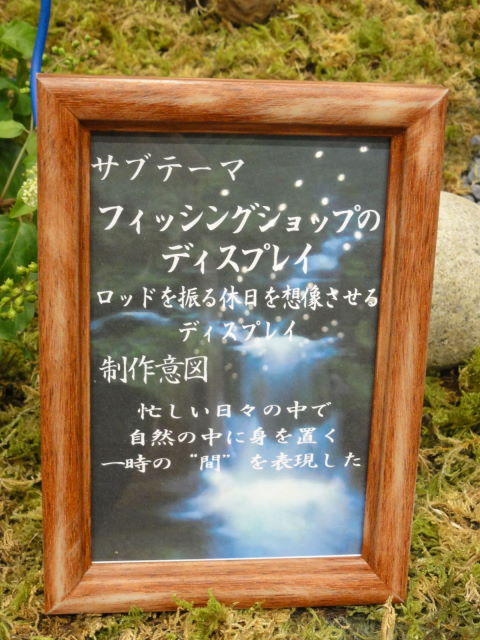 サブテーマ
フィッシングショップの
ディスプレイ
ロッドを振る休日を想像させる
ディスプレイ
制作意図
忙しい日々の中で
自然の中に身を置く
一時の〝間〟を表現した